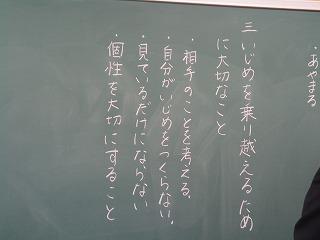 ・あやまる
三 いじめを乗り越えるため
に大切なこと
・相手のことを考える。
・自分がいじめをつくらない。
・見ているだけにならない
・個性を大切にすること